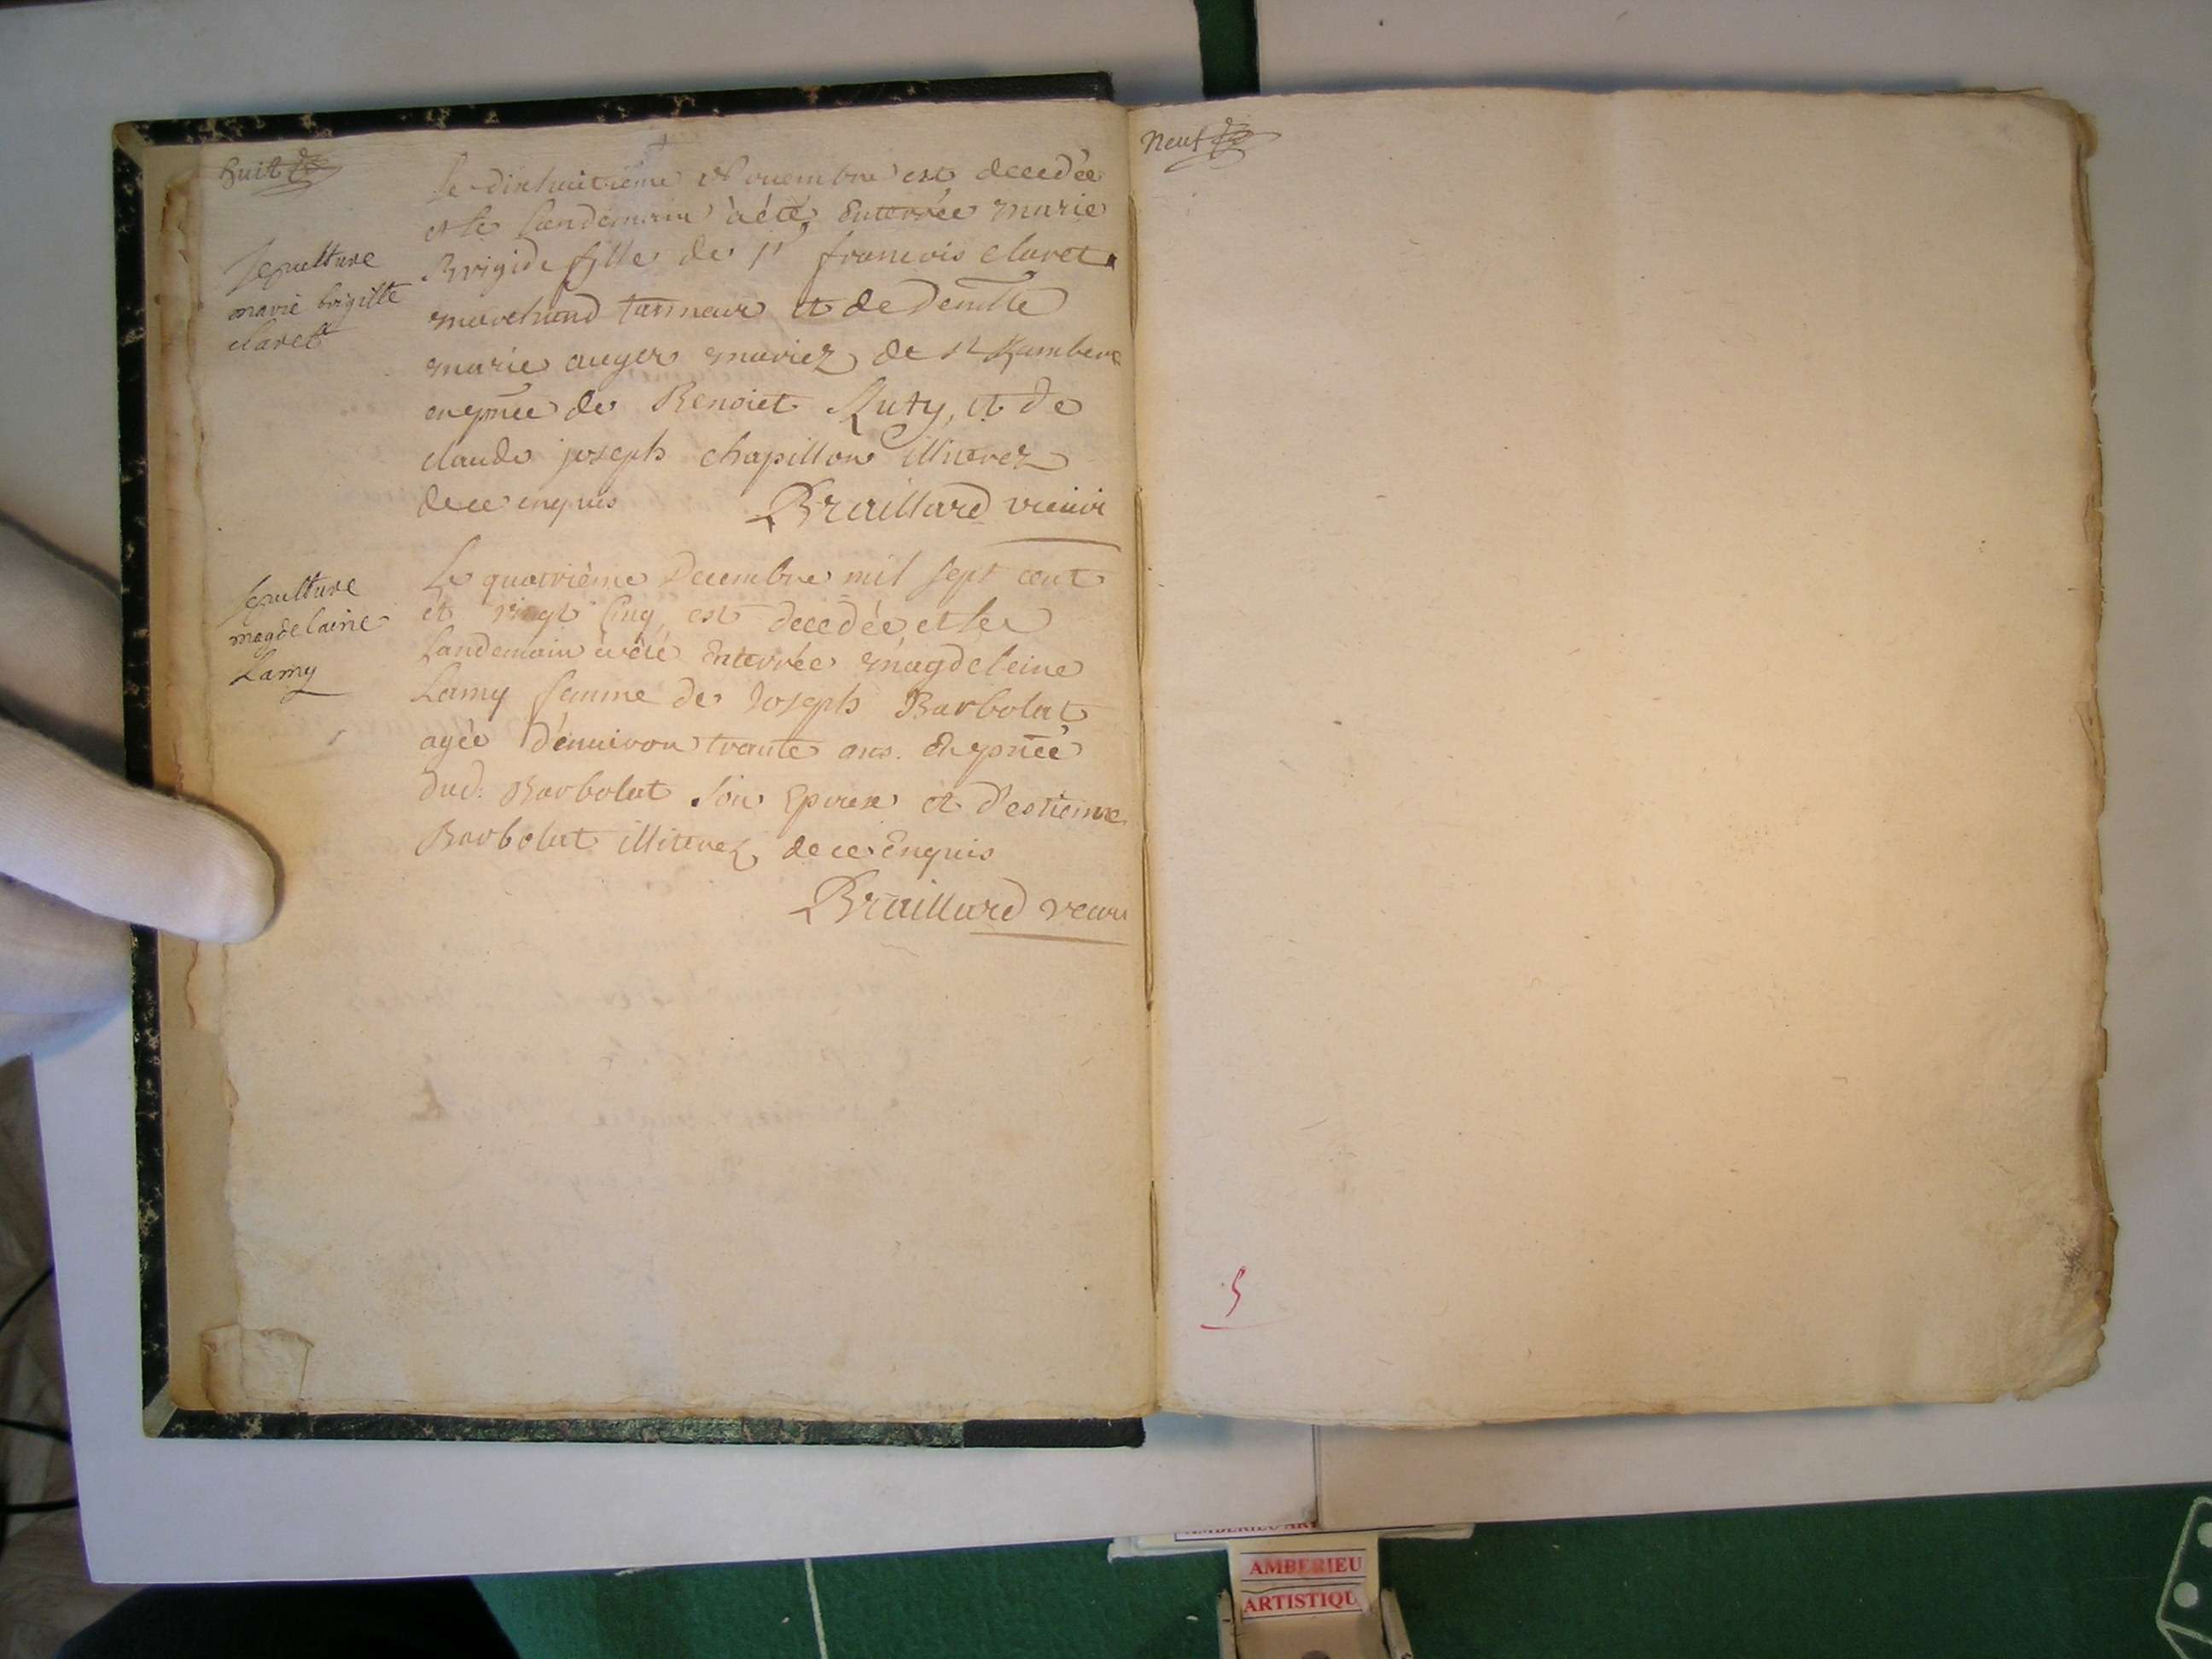 huit
Le dixhuitième Novembre est decedée
et le landemain a été Enterrée marie
Brigide fille de sr francois claret
marchand tanneur et de Demlle
marie auger mariez de st Rambert
en pnce de Benoiet Ruty, et de
claude joseph chapillon illiterez
de ce enquis
Braillard vicaire
sepulture
marie brigitte
claret
Le quatrième Decembre mil sept cent
et vingt cinq, est decedée et le
landemain a été Enterrée magdeleine
Lamy famme de Joseph Barbolat
agée d'enuiron trante ans. En pnce
dud. Barbolat son Epoux et d'estienne
Barbolat illiterez de ce Enquis
Braillard vicaire
sepulture
magdelaine
Lamy
Neuf
5
AMBERIEU
AMBERIEU
ARTISTIQU